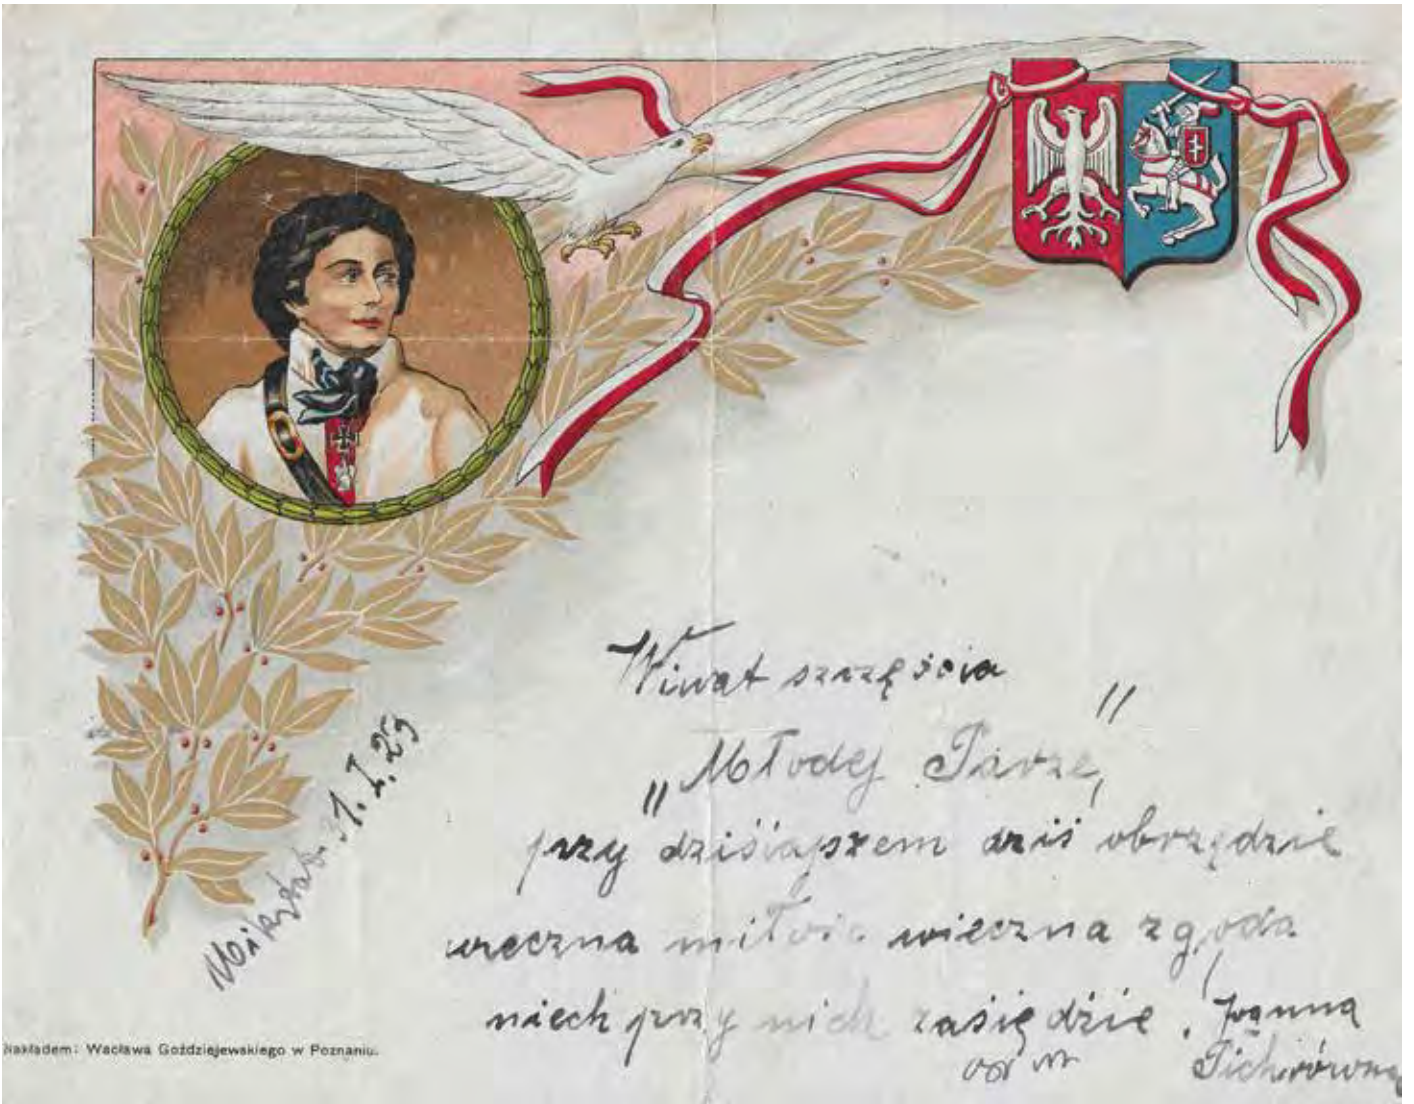 Wiwat szczęścia
„Młodej Parze,"
przy dziśiajszem dziś obrzędzie
wieczna miłoić wieczna zgoda
niech przy nich zaśiędzie. Joanna
Mikstat 31. I. 29
Nakładem: Wacława Goździejewskiego w Poznaniu.